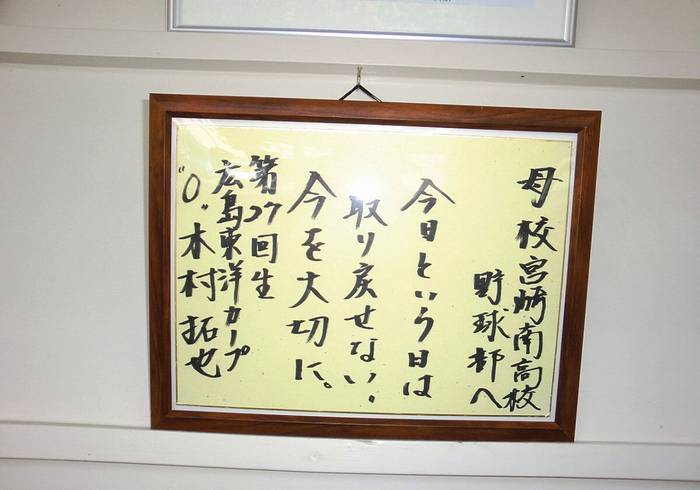 母校宮崎南高校
野球部へ
今日という日は
取り戻せない、
今を大切に。
第27回生
広島東洋カープ
"0" 木村拓也